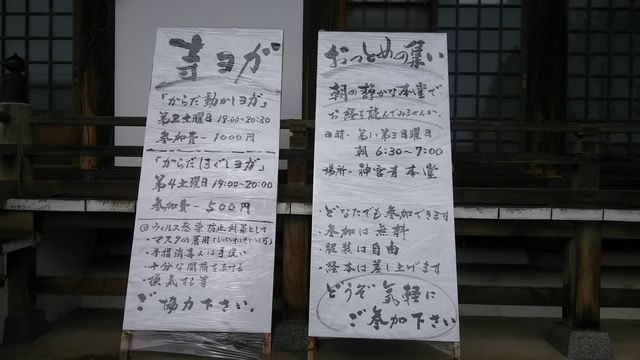 寺ヨガ
「からだ動かしヨガ」
第2土曜日 19:00~20:30
参加費ー 1000円
「からだほぐしヨガ」
第4土曜日 19:00~20:00
参加費ー 500円
◎ウィルス感染防止対策として
・マスクの着用
・手指消毒又は手洗い
・十分な間隔をあける
・換気する等
ご協力下さい。
おつとめの集い
朝の静かな本堂で
お経を読んでみませんか。
日時-第1、第3日曜日
朝 6:30~7:00
場所-神宮寺本堂
・どなたでも参加できます
・参加は無料
・服装は自由
・経本は差し上げます
どうぞ気軽に
ご参加下さい